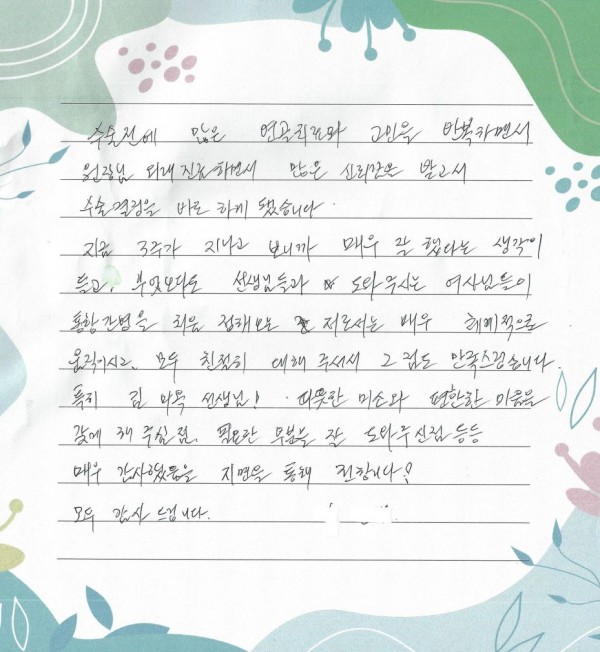 수술전에 많은 연골치료와 고민을 반복하면서
원장님 외래진료하면서 많은 신뢰감을 받고서
수술결정을 바로 하게 됐습니다.
지금 3주가 지나고 보니까 매우 잘 했다는 생각이
들고, 무엇보다도 선생님들과 도와주시는 여사님들이
통합간병을 처음 접해보는 저로서는 매우 체계적으로
움직이시고, 모두 친절히 대해 주셔서 그 점도 만족스럽습니다.
특히 김 선생님! 따뜻한 미소와 편한한 마음을
갖게 해 주신점, 필요한 부분을 잘 도와주신점 등등
매우 감사했음을 지면을 통해 전합니다!
모두 감사 드립니다.